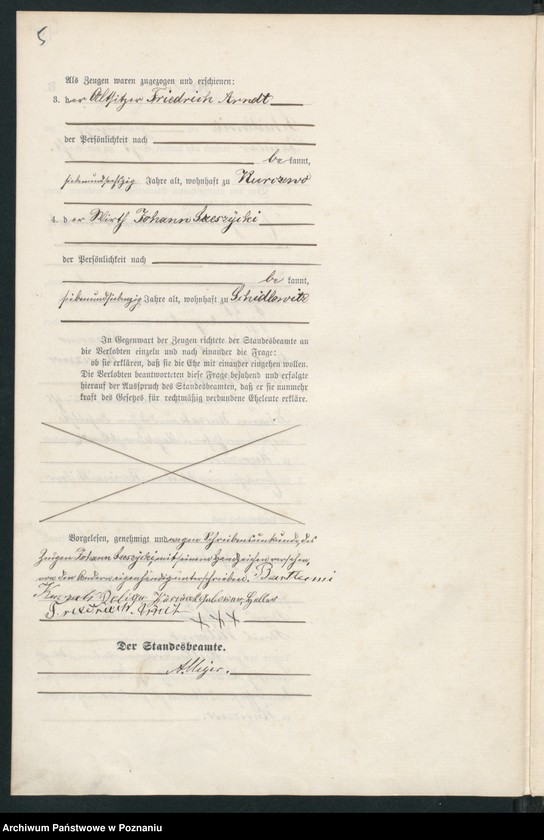 5
Als Zeugen waren zugezogen und erschienen:
3. der Altsitzer Friedrich Arndt
der Persönlichkeit nach
be kannt,
siebenundsechszig Jahre alt, wohnhaft zu Kurczewo
4. d er Wirth Johann
der Persönlichkeit nach
be kannt,
siebenundsiebenzig Jahre alt, wohnhaft zu Schidlowitz
In Gegenwart der Zeugen richtete der Standesbeamte an
die Verlobten einzeln und nach einander die Frage:
ob sie erklären, daß sie die Ehe mit einander eingehen wollen.
Die Verlobten beantworteten diese Frage bejahend und erfolgte
hierauf der Ausspruch des Standesbeamten, daß er sie nunmehr
kraft des Gesetzes für rechtmäßig verbundene Eheleute erkläre.
Vorgelesen, genehmigt und wegen Schreibensunkunde des
Zeugen Johann mit seinem Handzeichen versehen,
von den Andern eigenhändig unterschrieben.
geborene Heller
Friedrich Arndt
+++
Der Standesbeamte.
Archiwum Państwowe w Poznaniu